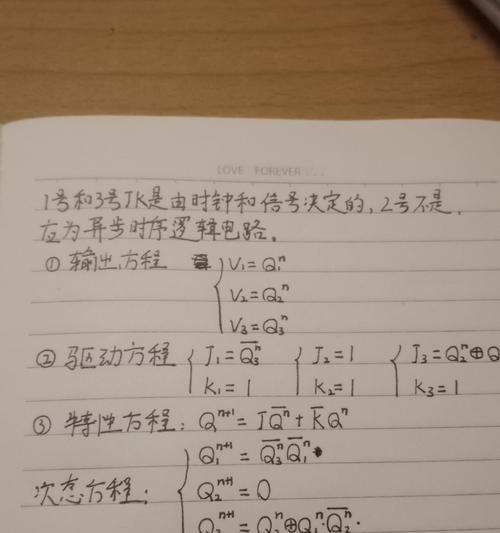 LOVE FOREVER...
1号和3号JK是由时钟和信号决定的,2号不是,
应为异步时序逻辑电路。
① 输出方程 { V₁=Q₁ⁿ
V₂=Q₂ⁿ
V₃=Q₃ⁿ
② 驱动方程 { J₁=Q̅₃ⁿ { J₂=1 { J₃=Q₂ⁿ⊕Q
K₁=1 K₂=1 K₃=1
③ 特性方程: Qⁿ⁺¹=JQ̅ⁿ+K̅Qⁿ
Q₁ⁿ⁺¹=Q̅₃ⁿQ̅₁ⁿ
次态方程: { Q₂ⁿ⁺¹=0
Qⁿ⁺¹=Q₂ⁿ⊕Q₁ⁿ·Q̅₂ⁿ·